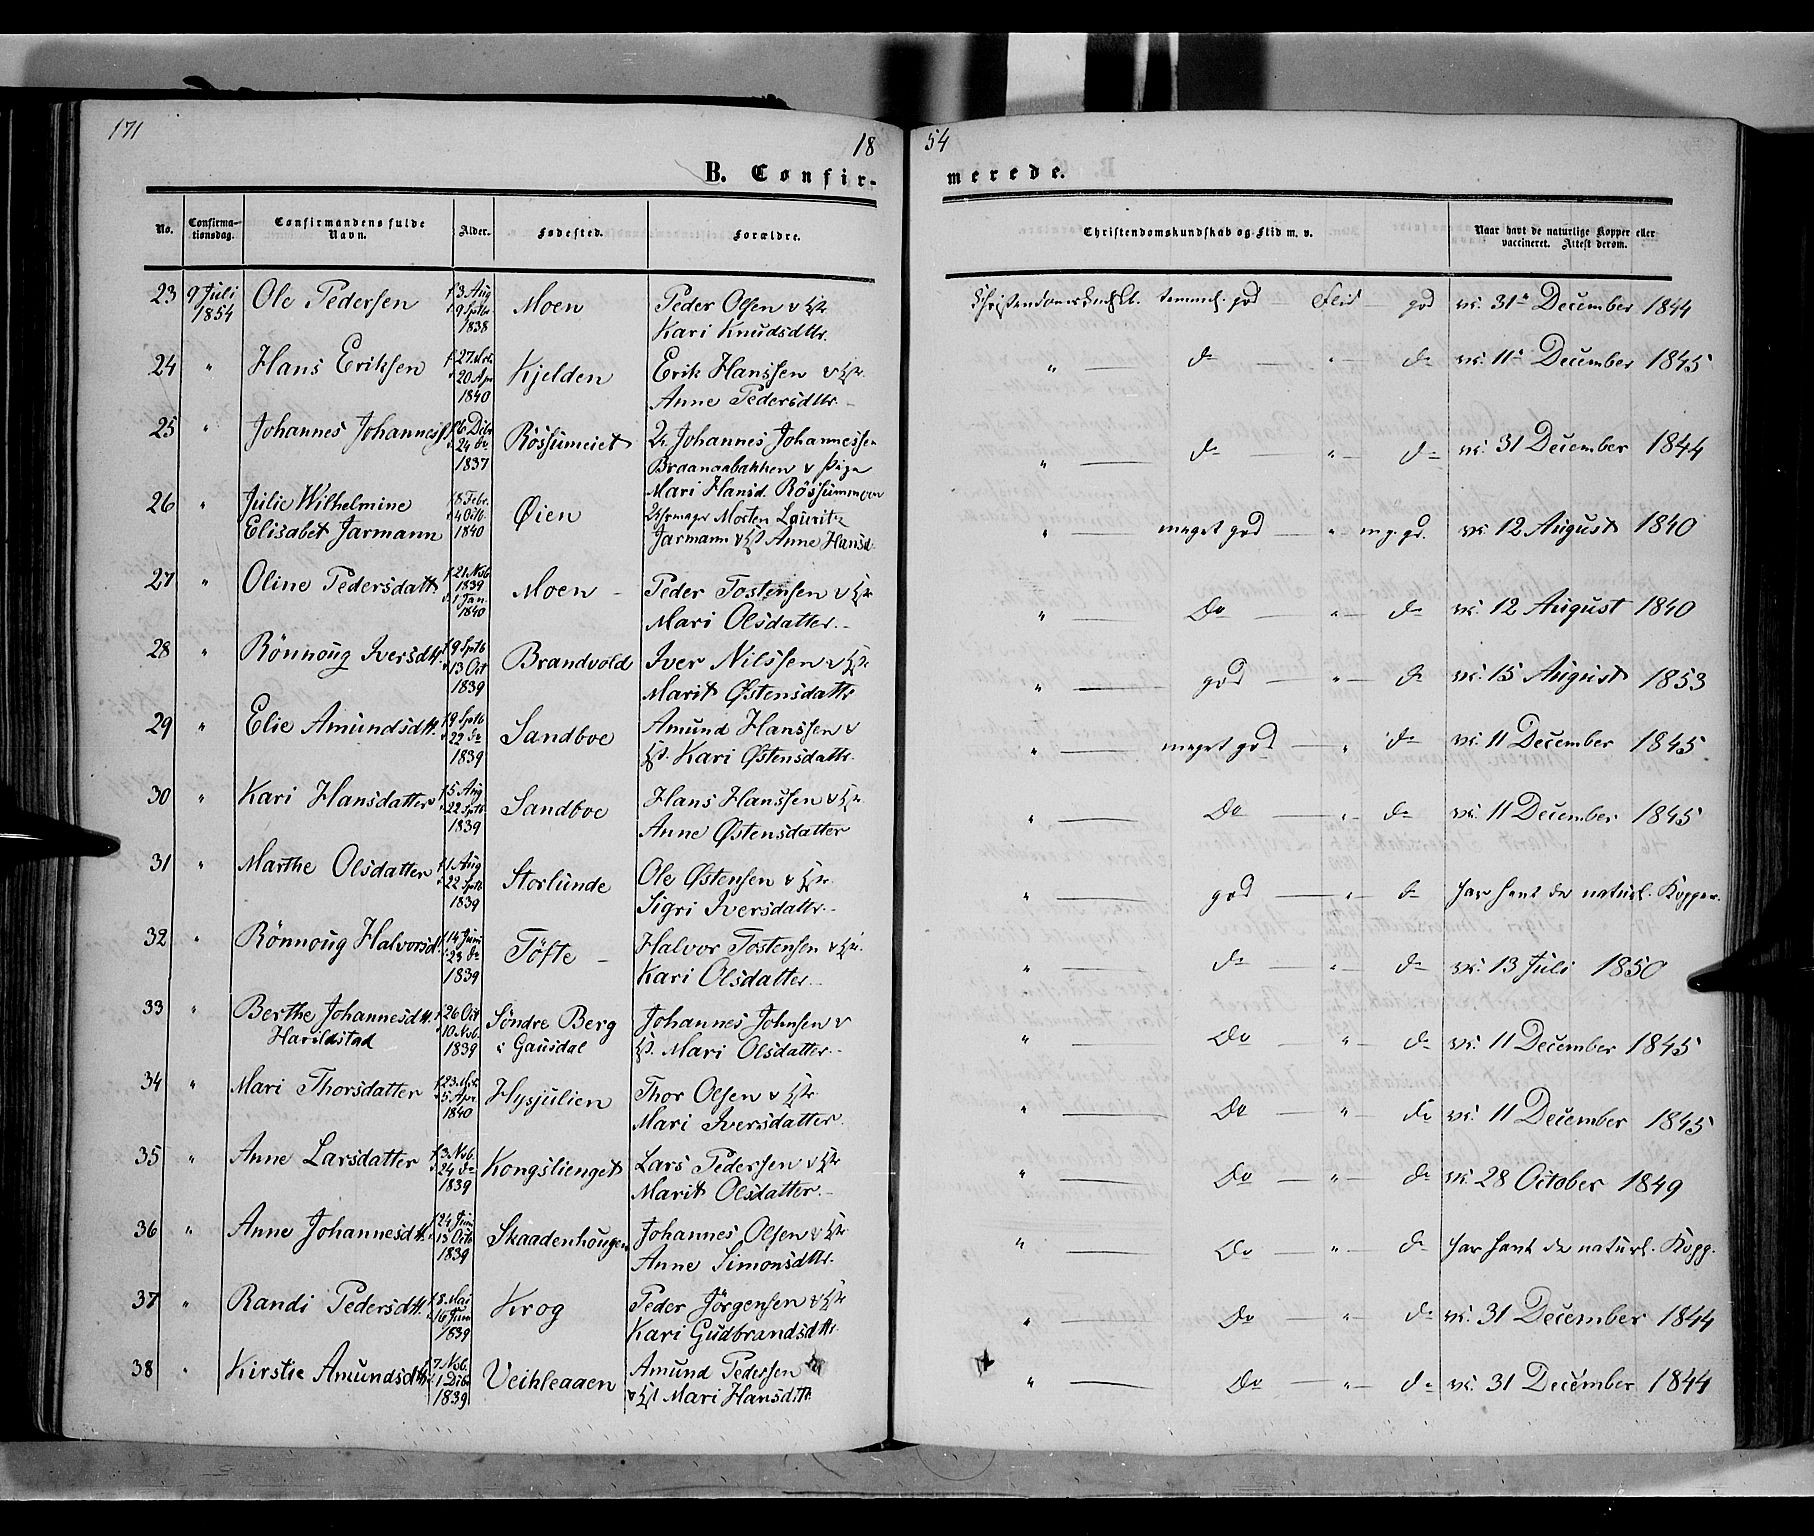 171
18
54
B. Confir-
merede.
No.
Confirma-
tionsdag.
Confirmandens fulde
Navn.
Alder.
Fødested.
Forældre.
Christendomskundskab og Flid m. v.
Naar havt de naturlige Kopper eller
vaccineret. Attest derom.
23 9 Juli 1854 Ole Pedersen f 3 Aug 9 Sptb 1838 Moen Peder Olsen v Hr Kari Knudsdttr. temmel. god Flid god vc. 31 December 1844
24 " Hans Eriksen f 27 20 Apr 1840 Kjelden Erik Hanssen v Hr. Anne Pedersdttr. " do " do vc. 11 December 1845
25 " Johannes Johanness 6 Dcbr 24 do 1837 Rössumeiet Johannes Johannessen Braanaabakken v Pige Mari Hansd. Rössummoen " do " do vc. 31 December 1844
26 " Julie Wilhelmine Elisabet Jarmann 18 Febr. 4 Octb. 1840 Øien Morten Lauritz Jarmann v Hst Anne Hansd. " meget god " mg. gd. vc. 12 August 1840
27 " Oline Pedersdatt f 21 Nvb. 1839 d. 1 Jan. 1840 Moen Peder Tostensen v Hr Mari Olsdatter. " Do " do vc. 12 August 1840
28 " Rönnoug Iversdtt f 9 Sptb 13 Oct 1839 Brandvold Iver Nilssen v Hr Marit Østensdattr " god " do vc. 15 August 1853
29 " Elie Amundsdtt. f 9 Sptb 22 do 1839 Sandboe Amund Hanssen v Hst. Kari Østensdattr. " meget god " do vc. 11 December 1845
30 " Kari Hansdatter f 5 Aug 22 Sptb 1839 Sandboe Hans Hanssen v Hr. Anne Østensdatter " Do " do vc. 11 December 1845
31 " Marthe Olsdatter f 1 Aug 22 Sptb 1839 Storlunde Ole Østensen v Hr. Sigri Iversdattr. " god " do har havt de naturl. Kopper.
32 " Rönnoug Halvorsd. f 14 Juni 23 do 1839 Töfte Halvor Tostensen v Hr. Kari Olsdatter. " do " do vc. 13 Juli 1850
33 " Berthe Johannesdtt. Harildstad f 26 Oct 10 Nvb. 1839 Söndre Berg i Gausdal Johannes Johnsen v Hst. Mari Olsdatter. " Do " do vc. 11 December 1845
34 " Mari Thorsdatter f 23 5 Apr 1840 Hysjulien Thor Olsen v Hr Mari Iversdatter. " Do " do vc. 11 December 1845
35 " Anne Larsdatter f 3 Nvb. 24 do 1839 Kongslienget Lars Pedersen v Hr Marit Olsdatter. " Do " do vc. 28 October 1849
36 " Anne Johannesdtt. f 24 Juni 13 Octb 1839 Skaadenhougen Johannes Olsen v Hr Anne Simonsdttr. " Do " do har havt de naturl. Kopp.
37 " Randi Pedersdtt. f 8 Mai 16 Juni 1839 Krog Peder Jörgensen v Hr Kari Gudbrandsdttr " Do " do vc. 31 December 1844
38 " Kirstie Amundsdtt f 7 Nvb. 1 Dcbr 1839 Veihleaaen Amund Pedersen v Hst Mari Hansdtt " Do " do vc. 31 December 1844